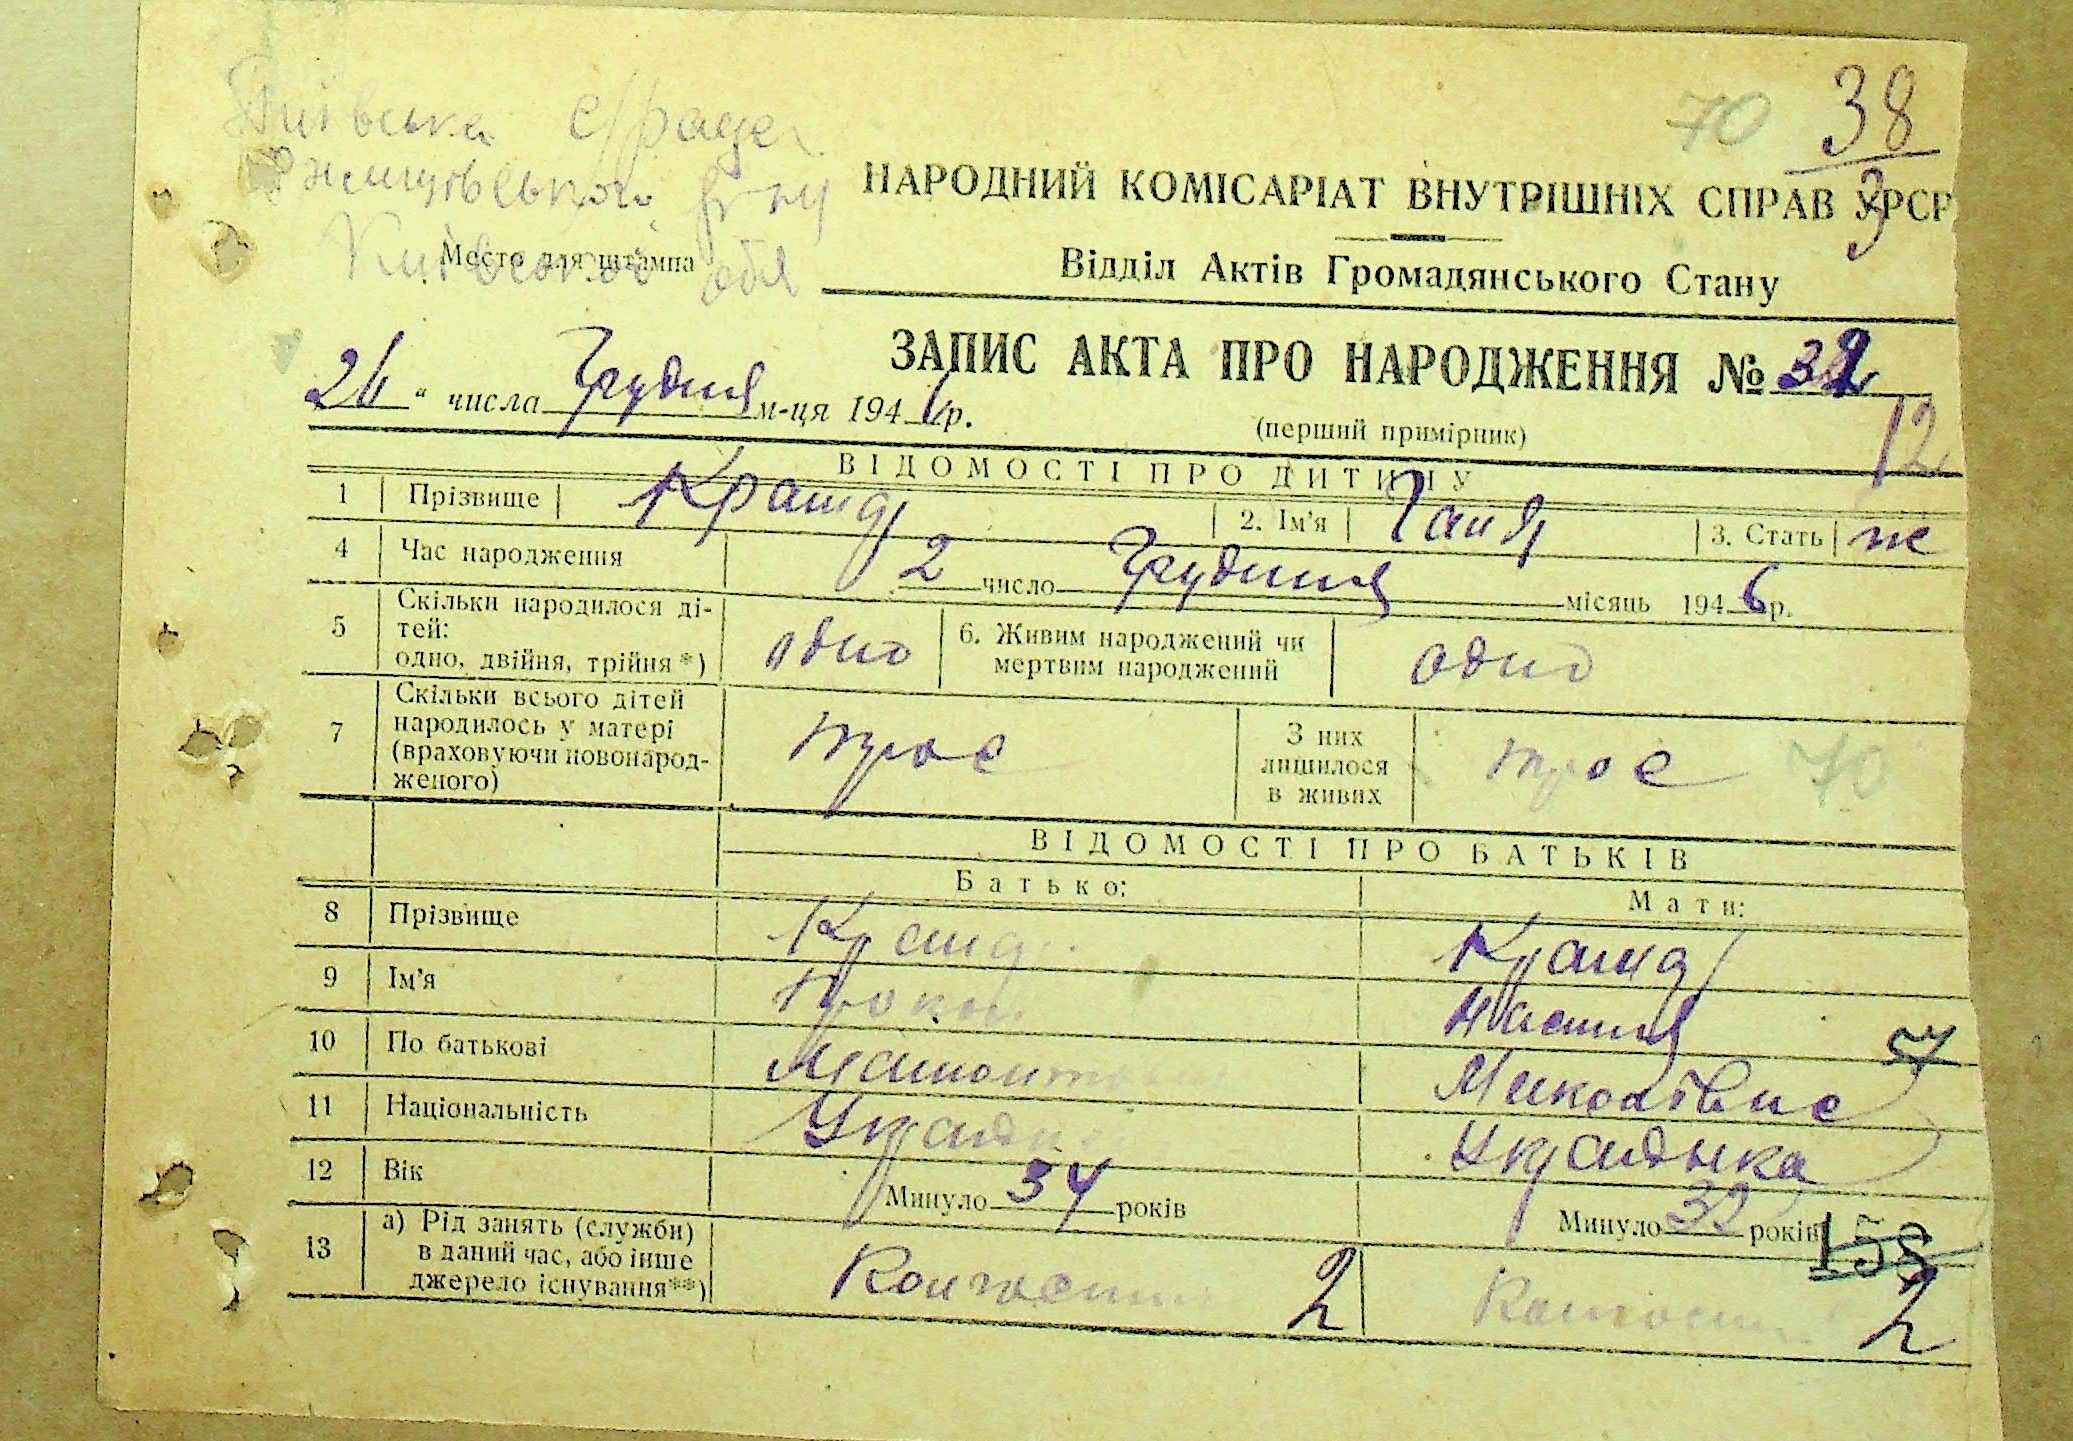 70 38
3
с/рада
Ржищівського р-ну
Київської обл
Место для штампа
НАРОДНИЙ КОМІСАРІАТ ВНУТРІШНІХ СПРАВ УРСР
Відділ Актів Громадянського Стану
ЗАПИС АКТА ПРО НАРОДЖЕННЯ № 32
26 " числа Грудня м-ця 1946 р.
(перший примірник)
12
ВІДОМОСТІ ПРО ДИТИНУ
1 Прізвище 2. Ім'я Ганя 3. Стать ж
4 Час народження 2 число Грудня місяць 1946 р.
5 Скільки народилося ді-
тей:
одно, двійня, трійня *) одно 6. Живим народжений чи
мертвим народжений одно
7 Скільки всього дітей
народилось у матері
(враховуючи новонарод-
женого) троє З них
лишилося
в живих троє 70
ВІДОМОСТІ ПРО БАТЬКІВ
Батько: Мати:
8 Прізвище
9 Ім'я Настя
10 По батькові 7
11 Національність Українка
12 Вік Минуло 34 років Минуло 32 років
158
13 а) Рід занять (служби)
в даний час, або інше
джерело існування**) 2 2